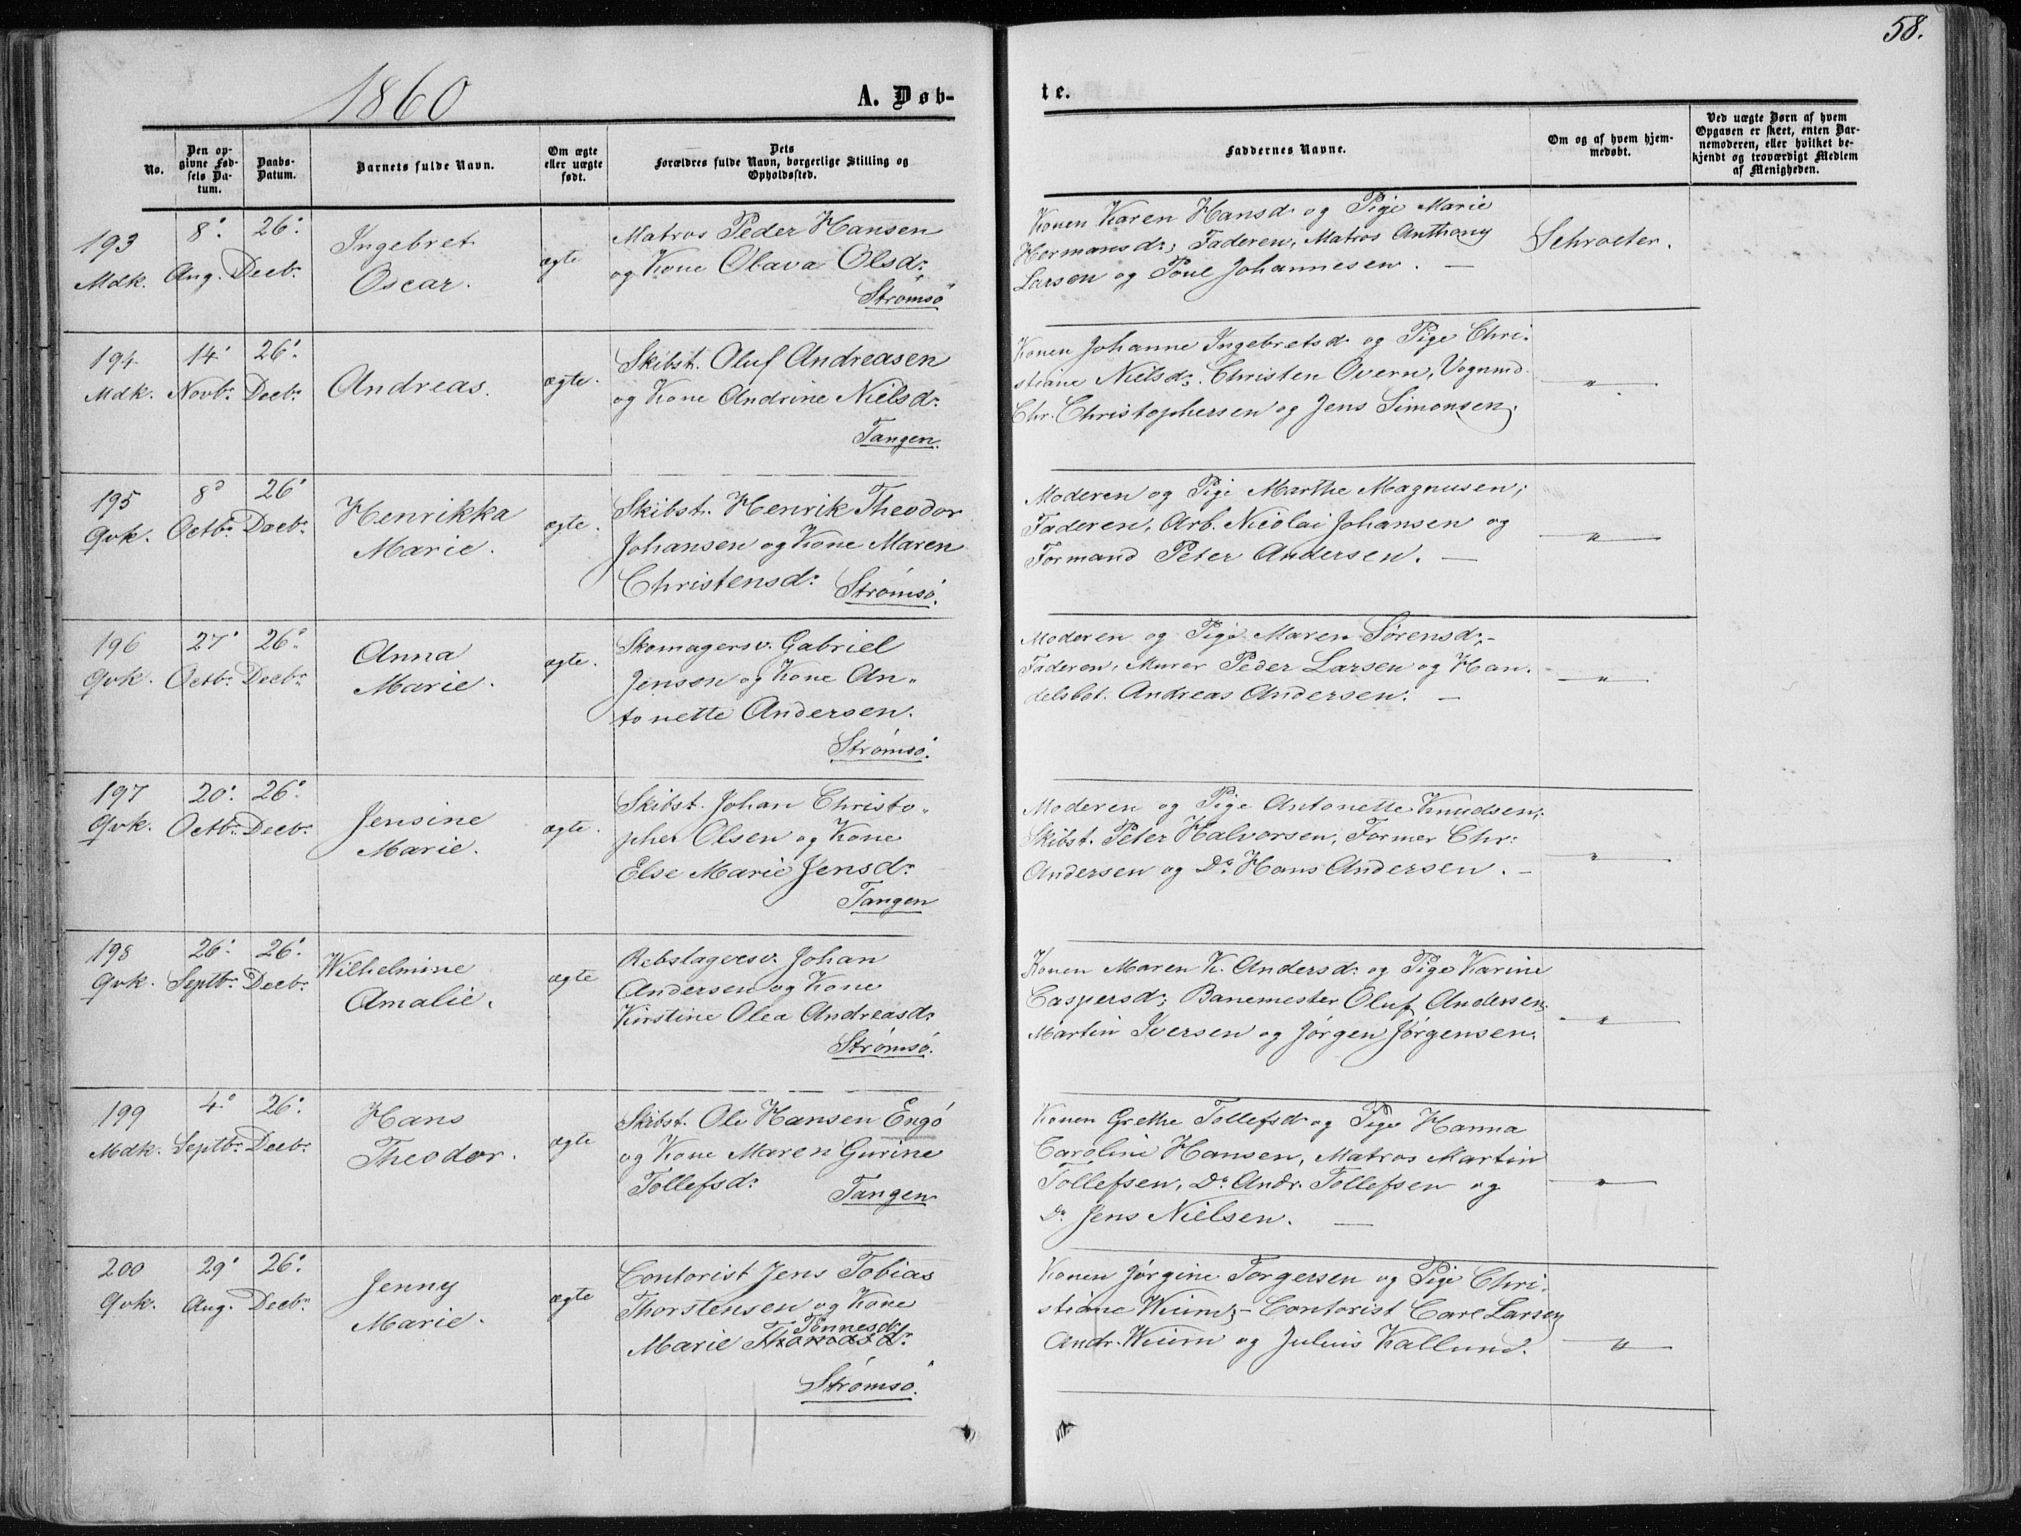 58.
1860
A. Døb-
te.
No.
Den op-
givne Fød-
sels Da-
tum.
Daabs-
Datum.
Barnets fulde Navn.
Om ægte
eller uægte
født.
Dets
Forældres fulde Navn, borgerlige Stilling og
Opholdssted.
Faddernes Navne.
Om og af hvem hjem-
medøbt.
Ved uægte Børn af hvem
Opgaven er skeet, enten Bar-
nemoderen, eller hvilket be-
kjendt og troværdigt Medlem
af Menigheden.
193
Mdk.
8.
Aug.
26.
Decbr.
Ingebret
Oscar.
ægte
Matros Peder Hansen
og Kone Olava Olsdr.
Strømsö
Konen Karen Hansd. og Pige Marie
Hermansdr; Faderen, Matros Anthony
Larsen og Poul Johannesen. —
Schroeter.
194
Mdk.
14
Novbr.
26.
Decbr.
Andreas.
ægte.
Skibst. Oluf Andreasen
og Kone Andrine Nielsdr.
Tangen.
Konen Johanne Ingebretsd. og Pige Chri-
stiane Nielsdr. Christen Overn, Vognmd.
Chr. Christophersen og Jens Simonsen.
— " —
195
Qvk.
8
Octbr.
26
Decbr.
Henrikka
Marie.
ægte.
Skibst. Henrik Theodor
Johansen og Kone Maren
Christensdr. Strømsö.
Moderen og Pige Marthe Magnusen;
Faderen, Arb. Nicolai Johansen og
Formand Peter Andersen. —
— " —
196
Qvk.
27
Octbr.
26.
Decbr.
Anna
Marie.
ægte.
Skomagersv. Gabriel
Jensen og Kone An-
tonette Andersen.
Strømsö.
Moderen og Pige Maren Sörensdr.-
Faderen, Murer Peder Larsen og Han-
delsbet. Andreas Andersen. —
— " —
197
Qvk.
20.
Octbr.
26.
Decbr.
Jensine
Marie.
ægte.
Skibst. Johan Christo-
pher Olsen og Kone
Else Marie Jensdr.
Tangen
Moderen og Pige Antonette Knudsen;
Skibst. Peter Halvorsen, Former Chr:
Andersen og Do. Hans Andersen. -
— " —
198
Qvk.
26.
Septbr.
26.
Decbr.
Wilhelmine
Amalie.
ægte
Rebslagersv. Johan
Andersen og Kone
Kirstine Olea Andreasdr.
Strømsö.
Konen Maren K. Andersdr. og Pige Karine
Caspersdr; Banemester Oluf Andersen,
Martin Iversen og Jörgen Jörgensen.
— " —
199
Mdk.
4
Septbr.
26.
Decbr.
Hans
Theodor.
ægte
Skibst. Ole Hansen Engö
og Kone Maren Gurine
Tollefsdr. Tangen
Konen Grethe Tollefsd. og Pige Hanna
Caroline Hansen, Matros Martin
Tollefsen, Do. Andr. Tollefsen og
Do. Jens Nielsen. —
— " —
200
Qvk.
29
Aug.
26.
Decbr.
Jenny
Marie.
ægte
Contorist Jens Tobias
Thorstensen og Kone
Tönnesdr.
Marie
Strømsö.
Konen Jörgine Torgersen og Pige Chri-
stiane Wiurn; - Contorist Carl Larsen,
Andr. Wiurn og Julius Kallund.
— " —